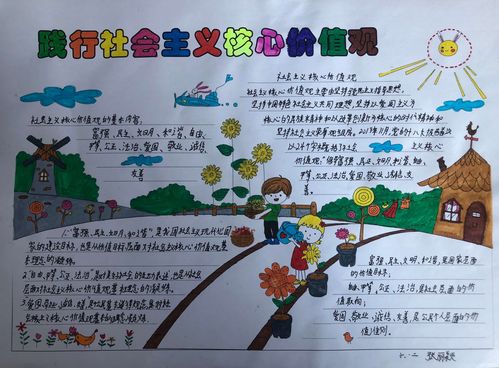 践行社会主义核心价值观
社会主义核心价值观的基本内容:
富强、民主、文明、和谐、自由、
平等、公正、法治、爱国、敬业、诚信、
友善
社会主义核心价值观
社会主义核心价值观主要由坚持马克思主义指导思想,
坚持中国特色社会主义共同理想,坚持以爱国主义为
核心的民族精神和以改革创新为核心的时代精神和
坚持社会主义荣辱观组成。
以24个字概括了社会主义核心
价值观,
富强、民主、文明、和谐、自由、
平等、公正、法治、爱国、敬业、诚信、友
善。
1."富强、民主、文明、和谐"是我国社会主义现代化国
家的建设目标,也是从价值目标层面对社会主义核心价值观基
本理念的凝练。
2."自由、平等、公正、法治"是对美好社会的生动表述,也是从社会
层面对社会主义核心价值观基本理念的凝练。
3.爱国、敬业、诚信、友善,是公民基本道德规范,是从
富强、民主、文明、和谐,是国家层面
的价值目标;
自由、平等、公正、法治,是社会层面的价
值取向;
爱国、敬业、诚信、友善,是公民个人层面的价
值准则。
六.二